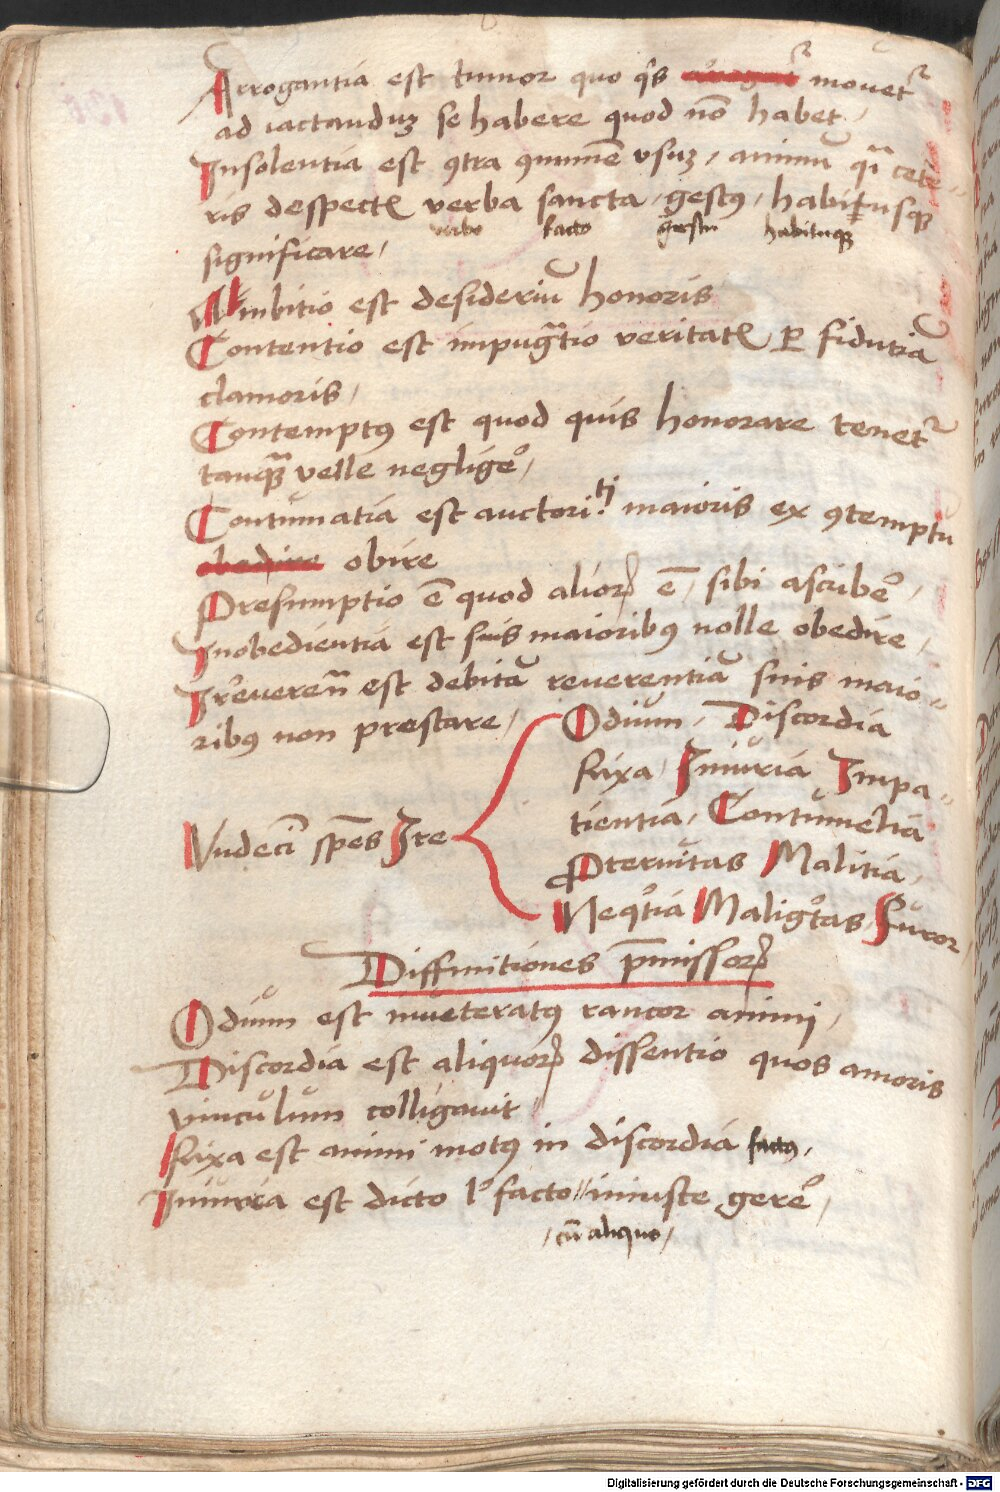 Arrogantia est tumor quo q's mouet'
ad iactanduʒ se habere quod nō habet,
Insolentia est 9tra 9munē vsuʒ, animū cete-
ris verba sancta, gest9, habitusqꝫ
verbo facto gestu habituqꝫ
significare,
Ambitio est desideriū honoris
Contentio est impugⁿatio veritatꝭ ꝑ fidutiā
clamoris,
Contempt9 est quod quis honorare tenet'
velle negliger̄,
Contumatia est auctori.ti maioris ex 9temptu
obedire obire
Presumptio ē quod alioꝝ ē, sibi asciber̄,
Inobedientia est suis maiorib9 nolle obedire,
Irreveren̄ est debitā reverentiā suis maio-
rib9 non prestare,
Odium, Discordia
Rixa, Iniuria Impa-
tientia, Contumelia
Vndeci spēs Ire
Proteruitas Malitia,
Neqͥtia Maligͥtas, Furor
Diffinitiones p̄missoꝝ
Odium est inueterat9 rancor animi,
Discordia est aliquoꝝ dissentio quos amoris
vinculum colligauit
Rixa est animi mot9 in discordia facta,
Iniuria est dicto l' facto iniuste gerer̄,
, cū aliquo,
Digitalisierung gefördert durch die Deutsche Forschungsgemeinschaft - DFG